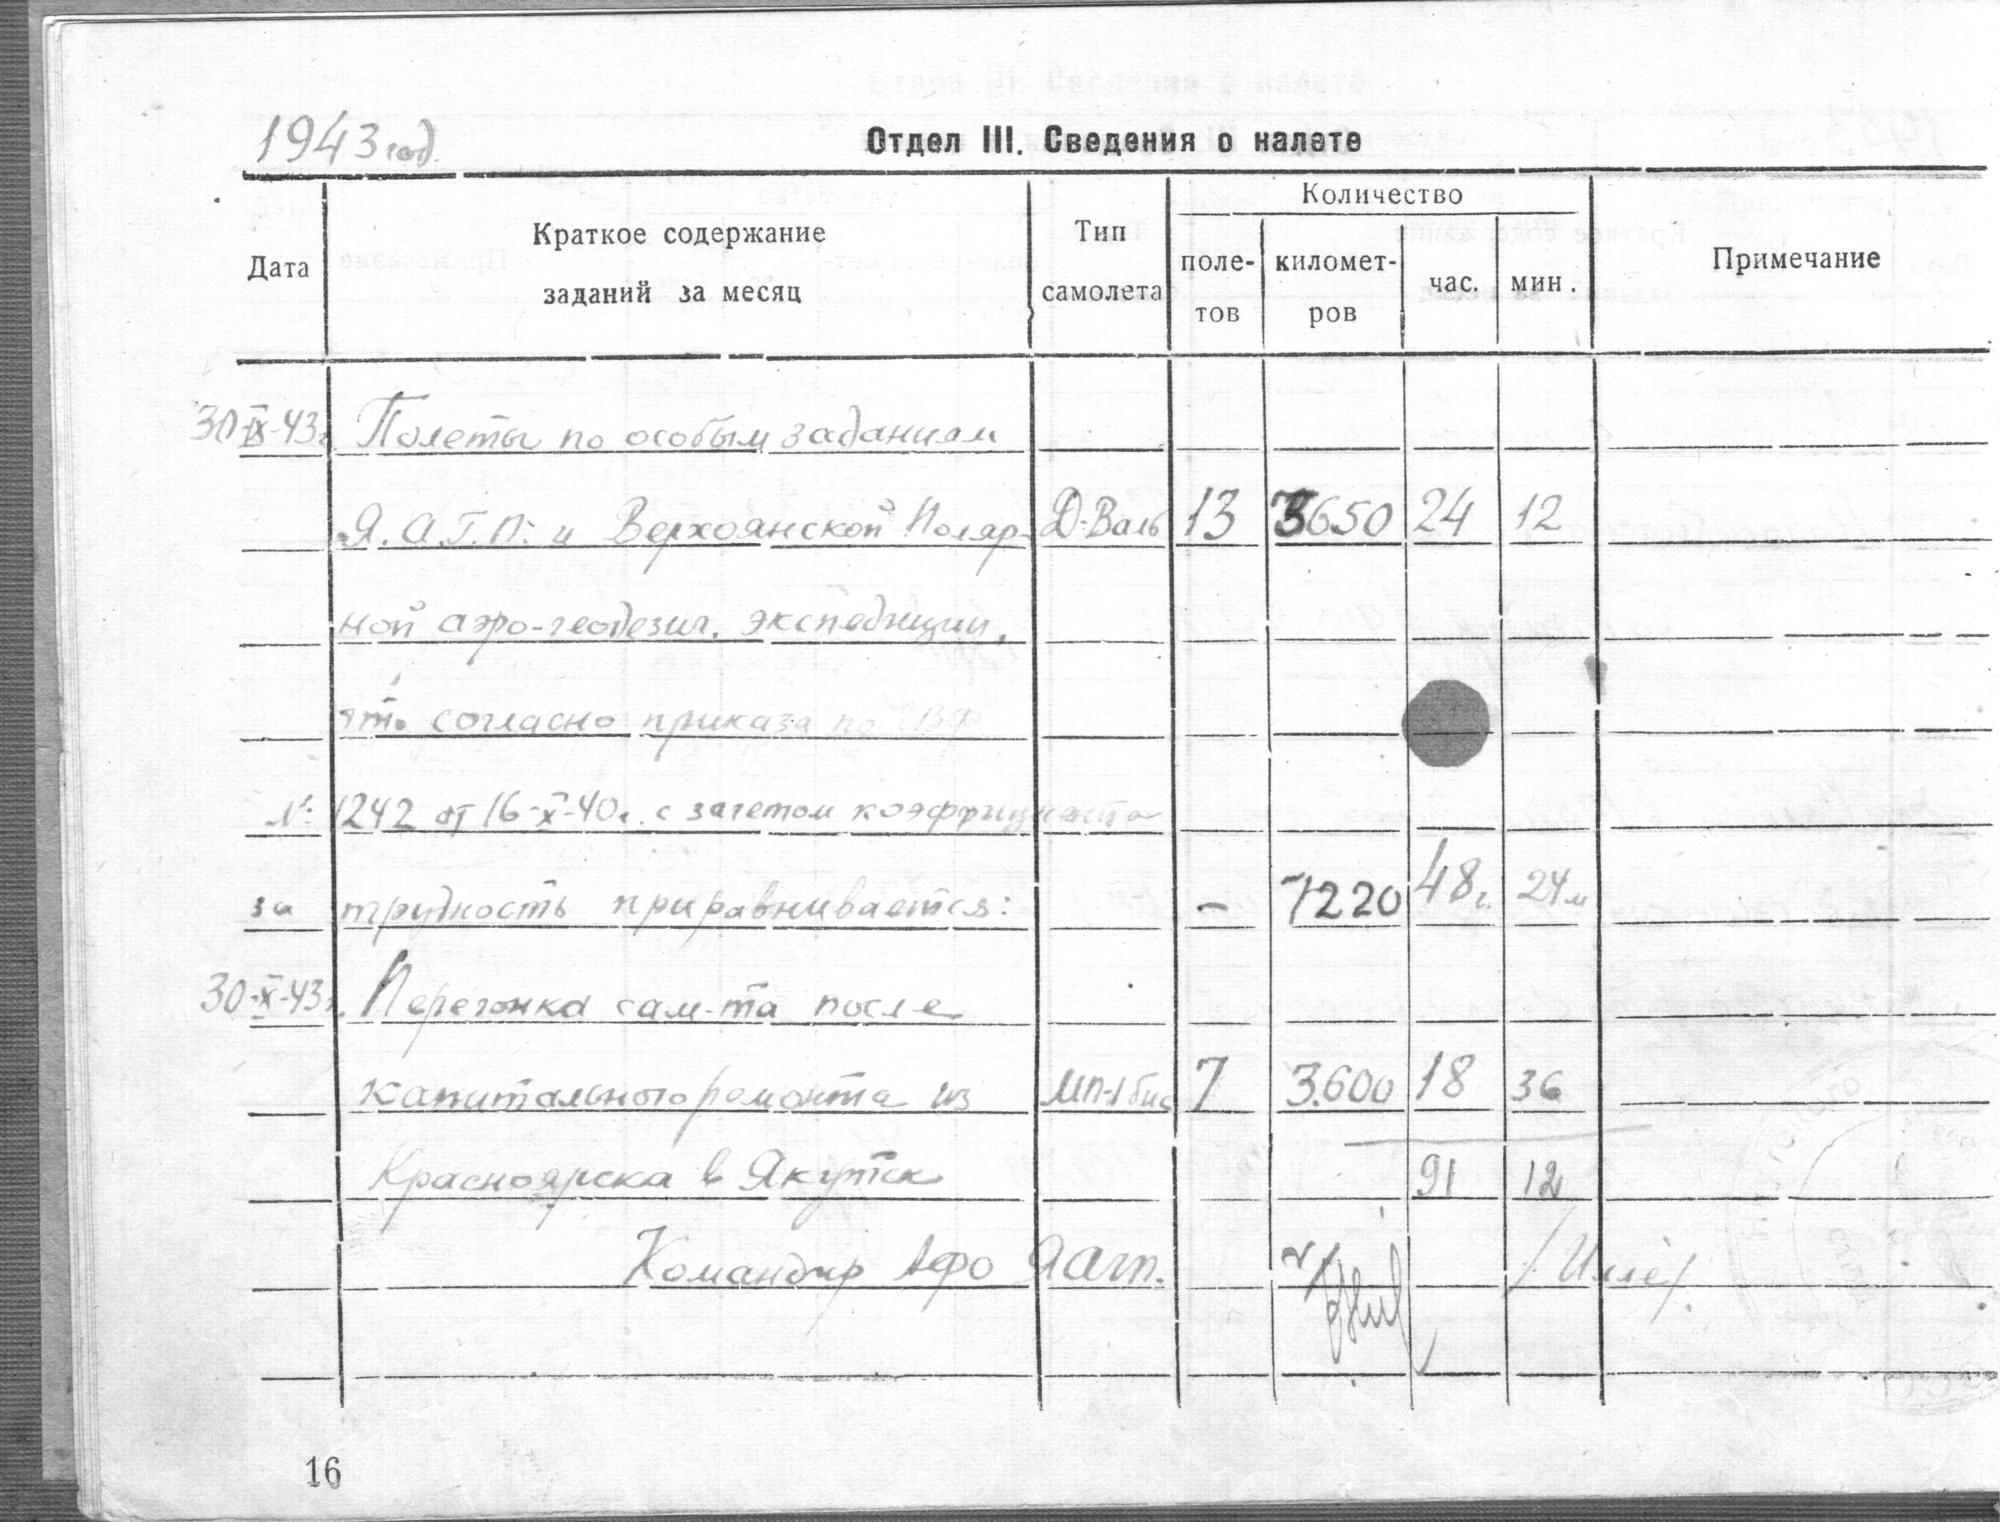 1943 год.
Отдел III. Сведения о налете
Дата
Краткое содержание
заданий за месяц
Тип
самолета
Количество
поле-
тов
километ-
ров
час.
мин.
Примечание
30-IX-43г Полеты по особым заданиям
Я.А.Г.П. и Верхоянской Поляр- Д-Валь 13 3650 24 12
ной аэро-геодезич. экспедиции,
что согласно приказа по ГВФ
№ 1242 от 16-X-40г. с зачетом коэффициента
за трудность приравнивается: - 7220 48г. 24м
30-X-43г. Перегонка сам-та после
капитального ремонта из МП-1бис 7 3.600 18 36
Красноярска в Якутск 91 12
Командир АФО ЯАГП.
16